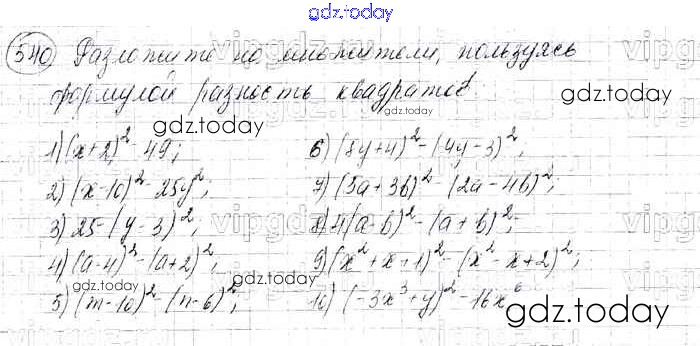 gdz.today
540) Разложите на множители, пользуясь
формулой разность квадратов
gdz.today
gdz.today
1) (x+2)² - 49; 6) (8y+4)² - (4y-3)²;
2) (x-10)² - 25y²; 7) (5a+3b)² - (2a-4b)²;
3) 25-(y-3)²; 8) 4(a-b)² - (a+b)²;
4) (a-4)² - (a+2)²; 9) (x²+x+1)² - (x²-x+2)²;
gdz.today
gdz.today
5) (m-10)² - (n-6)²; 10) (-3x³+y)² - 16x⁶
gdz.today